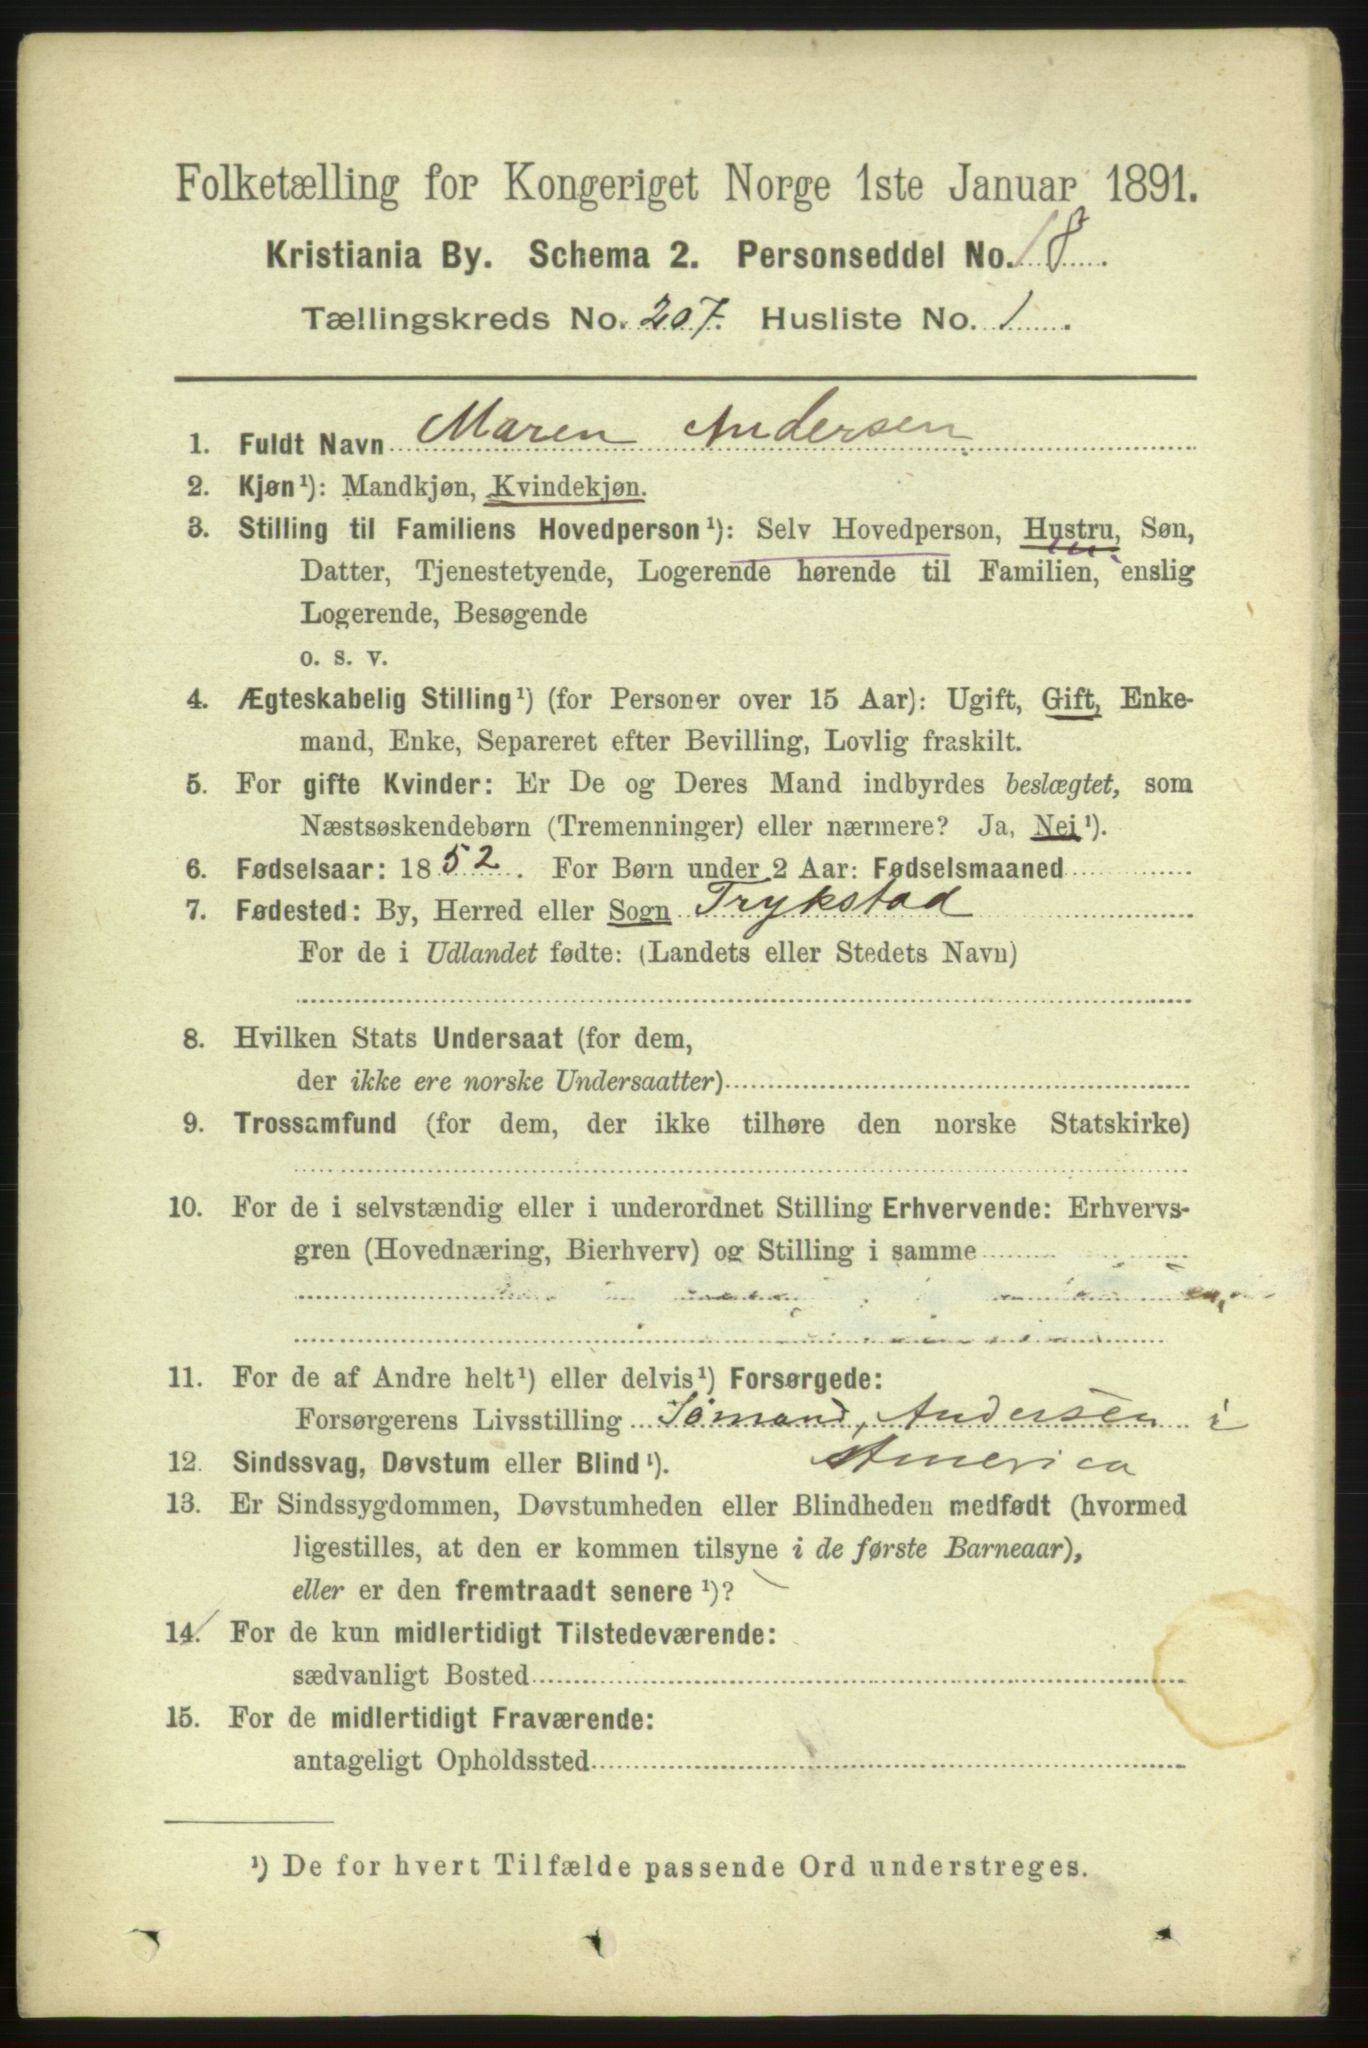 Folketælling for Kongeriget Norge 1ste Januar 1891.
Kristiania By. Schema 2. Personseddel No. 18
Tællingskreds No. 207. Husliste No. 1.
1. Fuldt Navn Maren Andersen
2. Kjøn¹): Mandkjøn, Kvindekjøn.
3. Stilling til Familiens Hovedperson¹): Selv Hovedperson, Hustru, Søn,
Datter, Tjenestetyende, Logerende hørende til Familien, enslig
Logerende, Besøgende
o. s. v.
4. Ægteskabelig Stilling¹) (for Personer over 15 Aar): Ugift, Gift, Enke-
mand, Enke, Separeret efter Bevilling, Lovlig fraskilt.
5. For gifte Kvinder: Er De og Deres Mand indbyrdes beslægtet, som
Næstsøskendebørn (Tremenninger) eller nærmere? Ja, Nei¹).
6. Fødselsaar: 1852. For Børn under 2 Aar: Fødselsmaaned
7. Fødested: By, Herred eller Sogn Trykstad
For de i Udlandet fødte: (Landets eller Stedets Navn)
8. Hvilken Stats Undersaat (for dem,
der ikke ere norske Undersaatter)
9. Trossamfund (for dem, der ikke tilhøre den norske Statskirke)
10. For de i selvstændig eller i underordnet Stilling Erhvervende: Erhvervs-
gren (Hovednæring, Bierhverv) og Stilling i samme
11. For de af Andre helt¹) eller delvis¹) Forsørgede:
Forsørgerens Livsstilling Sømand, Andersen i
America
12. Sindssvag, Døvstum eller Blind¹).
13. Er Sindssygdommen, Døvstumheden eller Blindheden medfødt (hvormed
ligestilles, at den er kommen tilsyne i de første Barneaar),
eller er den fremtraadt senere¹)?
14. For de kun midlertidigt Tilstedeværende:
sædvanligt Bosted
15. For de midlertidigt Fraværende:
antageligt Opholdssted
¹) De for hvert Tilfælde passende Ord understreges.